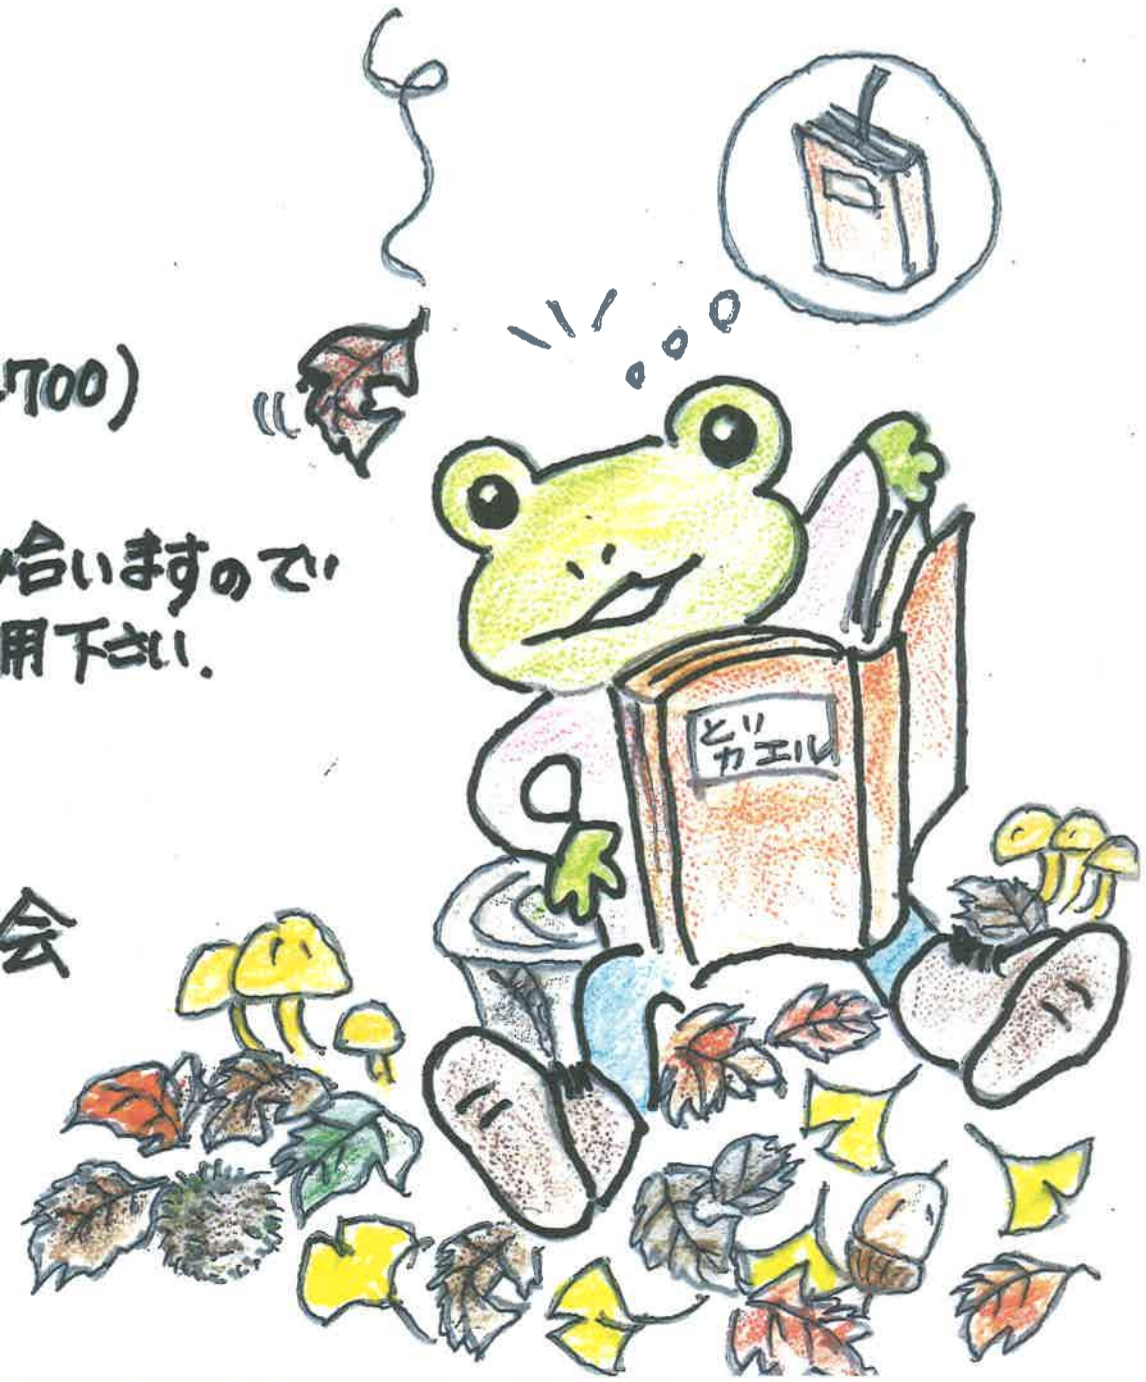 700)
合いますので
用下さい.
会
とり
カエル